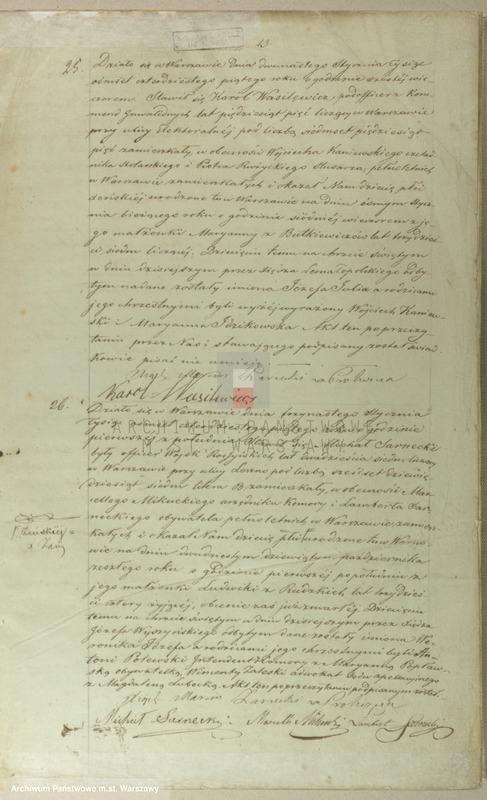 13.
25.
Działo się w Warszawie dnia dwunastego Stycznia tysiąc
ośmset czterdziestego piątego roku o godzinie szóstéj wie-
czorem. Stawił się Karól Wasilewicz, podofficer kom-
mend Inwalidnych lat pięćdziesiąt pięć liczący w Warszawie
przy ulicy Elektoralnéj pod liczbą siódmset pięćdziesiąt
pięć zamieszkały, w obecności Wójciecha Kaniewskiego czela-
dnika Stolarskiego i Piotra Slusarza, pełnoletnich
w Warszawie zamieszkałych i okazał Nam dziecię płci
żeńskiéj urodzone tu w Warszawie na dniu ósmym Stycz-
nia bieżącego roku o godzinie siódméj wieczorem z je-
go małżonki Maryanny z Butkiewiczów lat trzydzie-
ści siedm liczącéj. Dziecięciu temu na chrzcie świętym
w dniu dzisiejszym przez Księdza odby-
tym nadane zostały imiona Józefa Julia a rodzicami
jego chrzestnymi byli wyżéj wyrażony Wójciech Kaniew-
ski i Maryanna Idzikowska. Akt ten po przeczy-
taniu przez Nas i stawającego podpisany został świad-
kowie pisać nie umieją.
Karól Wasilewicz
26.
Działo się w Warszawie dnia Stycznia
tysiąc ośmset czterdziestego piątego roku o godzinie
pierwszéj z południa. Stawił się Michał Sarnecki
były officer Wojsk Rossyjskich lat dwadzieścia siedm liczący
w Warszawie przy ulicy Leszno pod liczbą sześćset dziewięć-
dziesiąt siedm litera B. zamieszkały, w obecności Mar-
cellego Mikuckiego urzędnika Komory i Lamberta Sar-
neckiego obywatela pełnoletnich w Warszawie zamiesz-
kałych i okazał Nam dziecię płci urodzone tu w Warsza-
wie na dniu dwudziestym dziewiątym października
zeszłego roku o godzinie pierwszéj po południu z
jego małżonki Ludwiki z Rudzkich lat trzydzie-
ści cztery żyjącéj, obecnie zaś już zmarłéj. Dziecięciu
temu na chrzcie świętym w dniu dzisiejszym przez Księdza
Józefa Wyszyńskiego odbytym dane zostały imiona We-
ronika Józefa a rodzicami jego chrzestnymi byli An-
toni Intendent Komory z Maryanną
obywatelką, Wincenty Zaleski adwokat Sądu apelacyjnego
z Magdaleną Łubecką. Akt ten po przeczytaniu podpisanym został
Michał Sarnecki
żeńskiéj
Archiwum Państwowe m.st. Warszawy